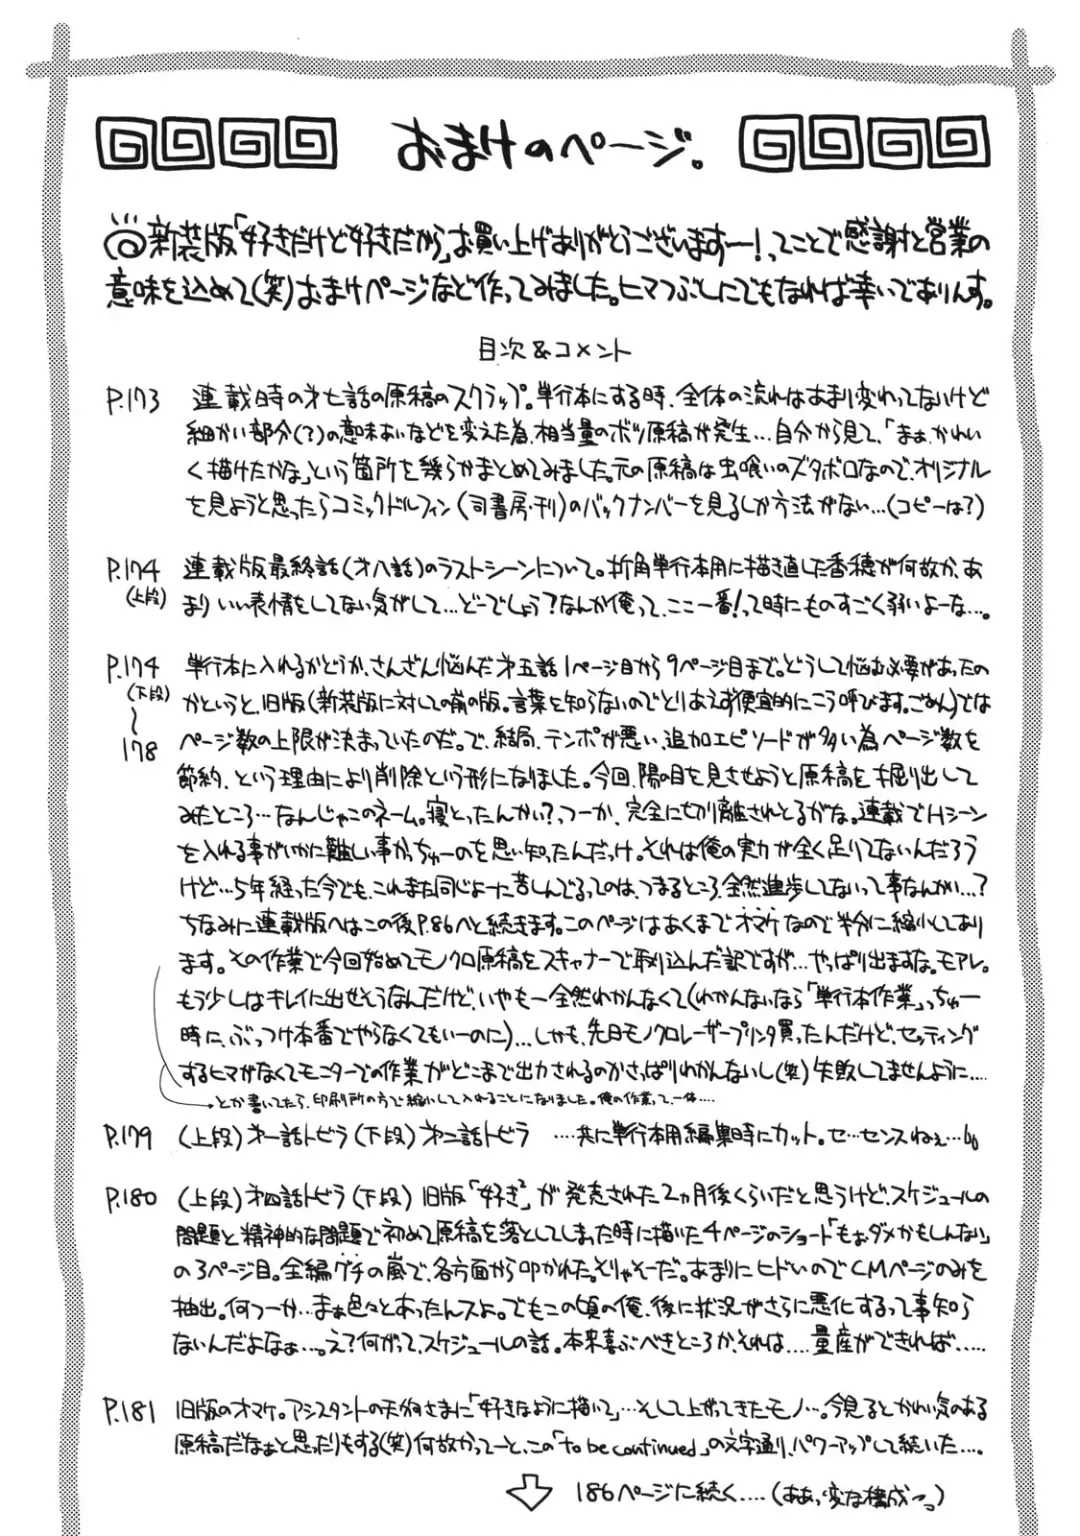 おまけのページ。
新装版「好きだけど好きだから」お買い上げありがとうございますー！ってことで感謝と営業の
意味を込めて(笑)おまけページなど作ってみました。ヒマつぶしにでもなれば幸いでありんす。
目次&コメント
P.173 連載時の才七話の原稿のスクラップ。単行本にする時、全体の流れはあまり変わってないけど
細かい部分(？)の意味あいなどを変えた為、相当量のボツ原稿が発生…自分から見て、「まぁ、かわい
く描けたかな」という箇所を幾らかまとめてみました。元の原稿は虫喰いのズタボロなので、オリジナル
を見ようと思ったらコミックドルフィン(司書房・刊)のバックナンバーを見るしか方法がない…(コピーは？)
P.174 連載版最終話(才八話)のラストシーンについて。折角単行本用に描き直した香穂が何故か、あ
(上段) まりいい表情をしてない気がして…どーでしょう？なんか俺って、ここ一番！って時にものすごく弱いよーな…。
P.174 単行本に入れるかどうか、さんざん悩んだ才五話1ページ目から9ページ目まで。どうして悩む必要があったの
(下段) かというと、旧版(新装版に対しての前の版。言葉を知らないのでとりあえず便宜的にこう呼びます。ごめん)では
〜178 ページ数の上限が決まっていたのだ。で、結局、テンポが悪い、追加エピソードが多い為ページ数を
節約、という理由により削除という形になりました。今回、陽の目を見させようと原稿を掘り出して
みたところ…なんじゃこのネーム。寝とったんかい？っつーか、完全に切り離されとるがな。連載でHシーン
を入れる事がいかに難しい事かっちゅーのを思い知ったんだっけ。それは俺の実力が全く足りてないんだろう
けど…5年経った今でも、これまた同じよーに苦しんでるってのは、つまるところ、全然進歩してないって事なんかい…？
ちなみに連載版へはこの後P.86へと続きます。このページはあくまでオマケなので半分に縮小してあり
ます。その作業で今回始めてモノクロ原稿をスキャナーで取り込んだ訳ですが…やっぱり出ますな。モアレ。
もう少しはキレイに出せそうなんだけど、いやもー全然わかんなくて(わかんないなら「単行本作業」っちゅー
時に、ぶっつけ本番でやらなくてもいーのに)…しかも、先日モノクロレーザープリンタ買ったんだけど、セッティング
するヒマがなくてモニターでの作業がどこまで出力されるのかさっぱりわかんないし(笑)失敗してませんように…。
→とか書いてたら、印刷所の方で縮小して入れることになりました。俺の作業って、一体…。
P.179 (上段)才一話トビラ(下段)才二話トビラ …共に単行本用編集時にカット。セ…センスねぇ…
P.180 (上段)才四話トビラ(下段)旧版「好き²」が発売された2ヵ月後くらいだと思うけど、スケジュールの
問題と精神的な問題で初めて原稿を落としてしまった時に描いた4ページのショート「もぉダメかもしんない」
の3ページ目。全編グチの嵐で、各方面から叩かれた。そりゃそーだ。あまりにヒドいのでCMページのみを
抽出。何つーか…まぁ色々とあったんスよ。でもこの頃の俺、後に状況がさらに悪化するって事知ら
ないんだよなぁ…。え？何がって、スケジュールの話。本来喜ぶべきところか、それは…。量産ができれば……
P.181 旧版のオマケ。アシスタントの天狗さまに「好きなように描いて」…そして上がってきたモノ…。今見るとかわい気のある
原稿だなぁと思ったりもする(笑)何故かってーと、この「to be continued」の文字通り、パワーアップして続いた…。
186ページに続く…。(ああっ変な構成〜っ)